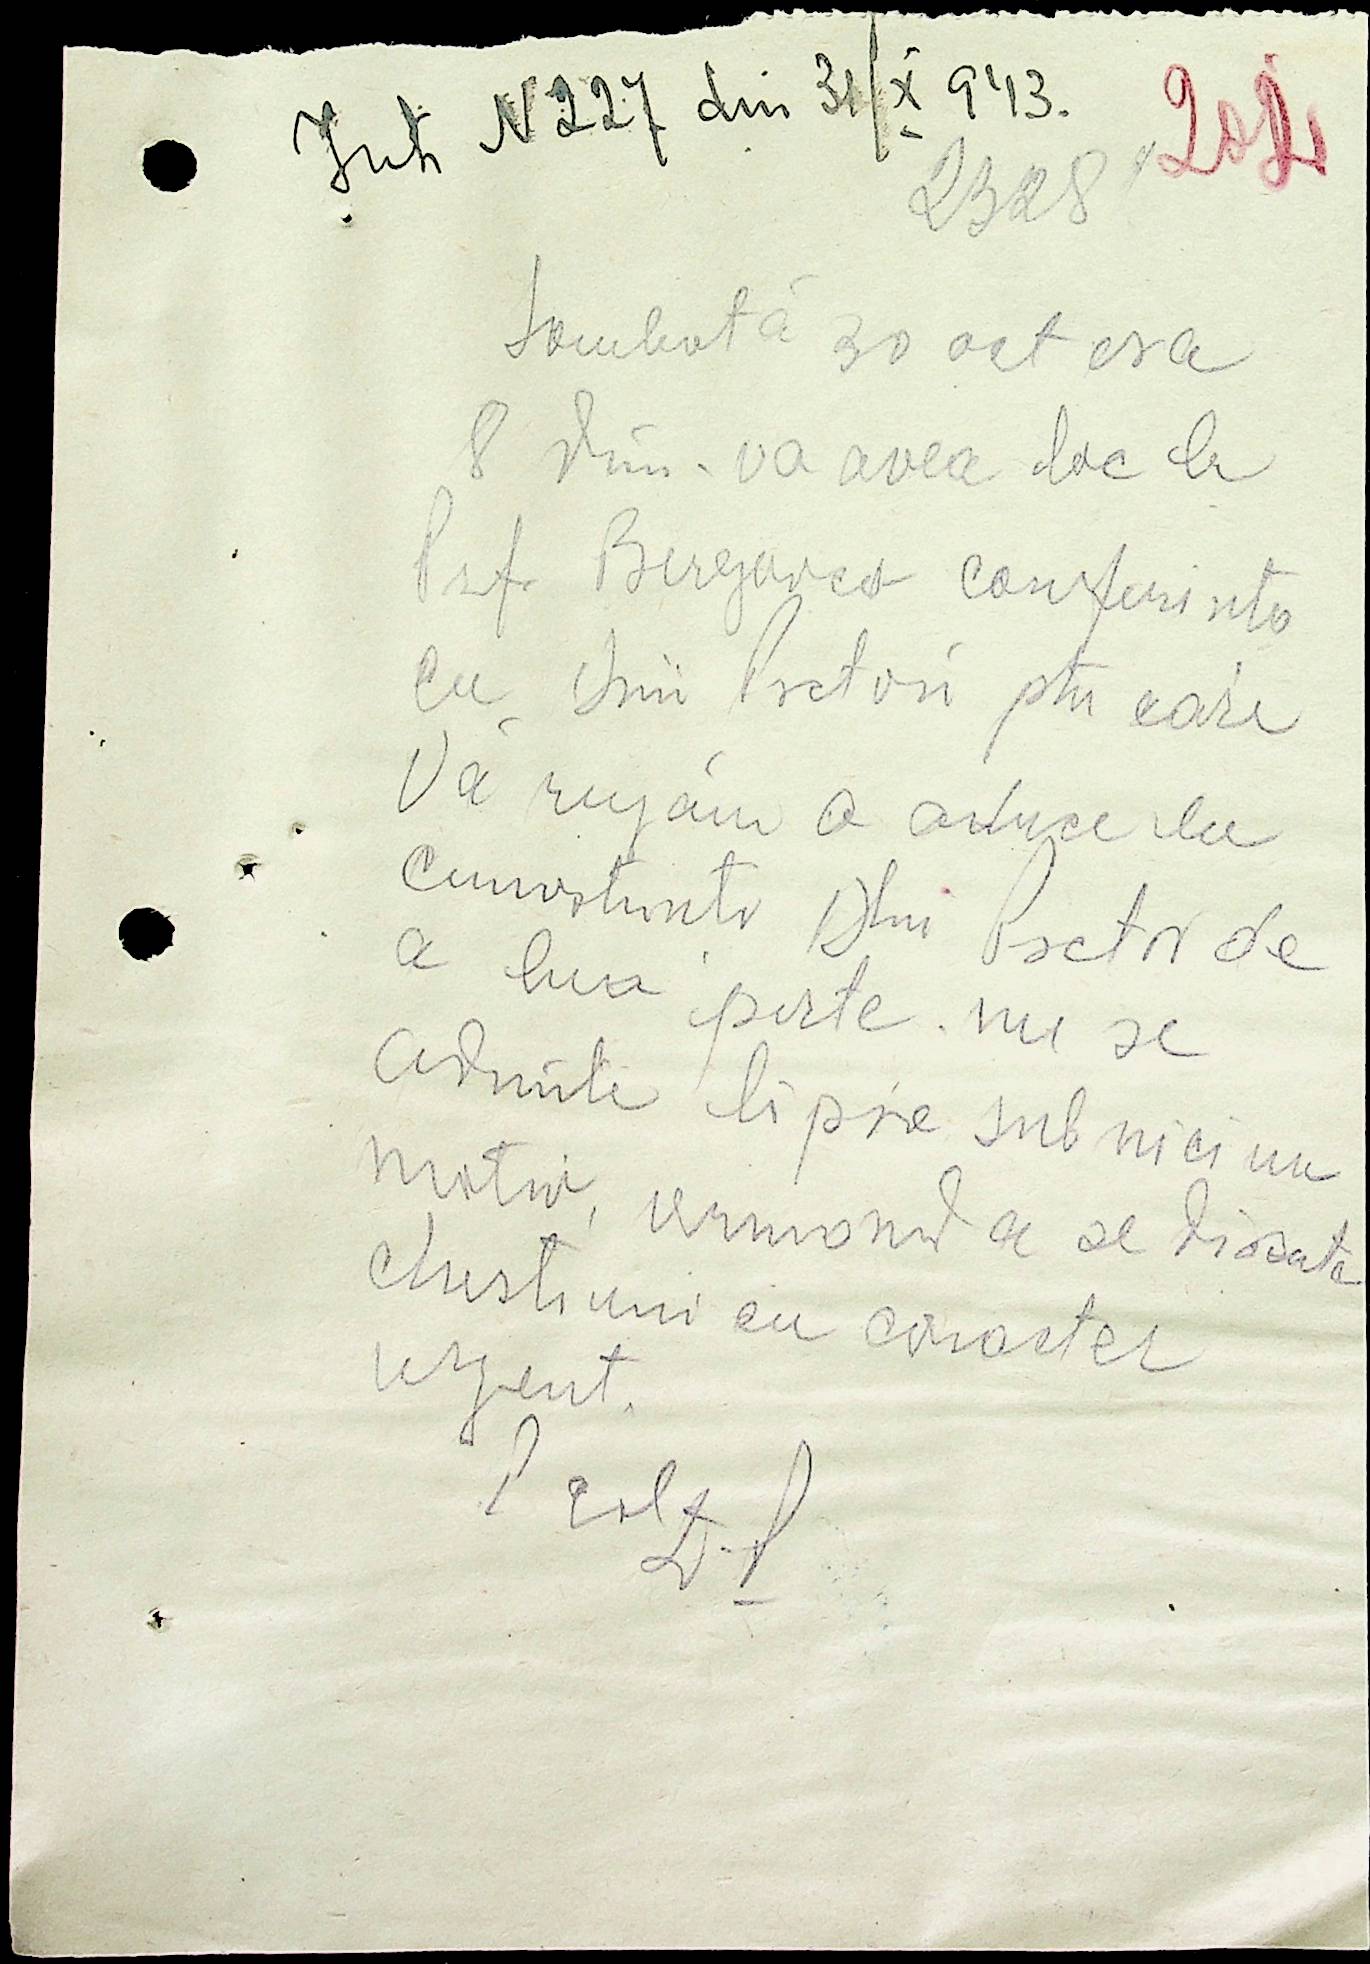 Int N 227 din 31/X 943.
202
2328
Sambotă 30 oct ora
8 Dim. va avea loc la
Pref. Berezovca conferinta
cu Dnii Pretori ptu care
Vă rugăm a aduce la
Cunostinta Dlui Pretor de
a lua parte. nu se
admite lipsa sub nici un
motiv, urmand a se discuta
chestiuni cu caracter
urgent.
P col